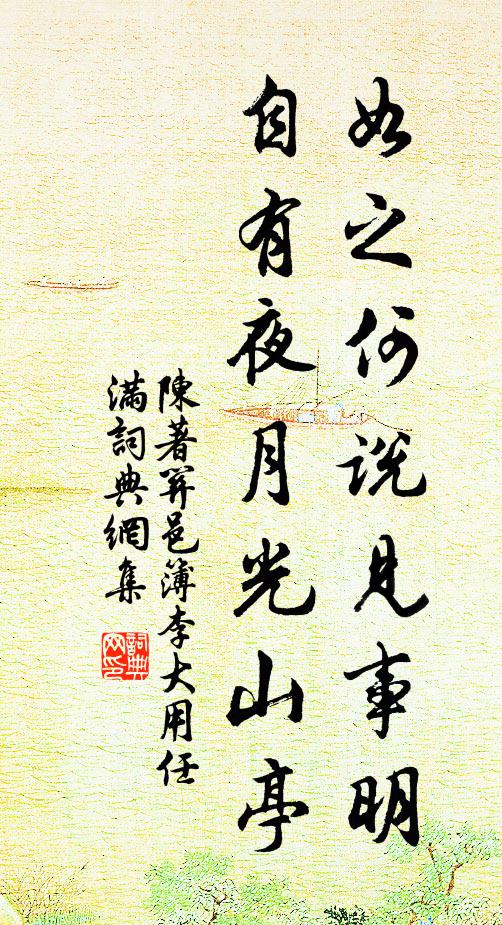 如之何說見事明
自有夜月光山亭
陳著筓邑簿李大用任
滿詞典網集
詞典網印